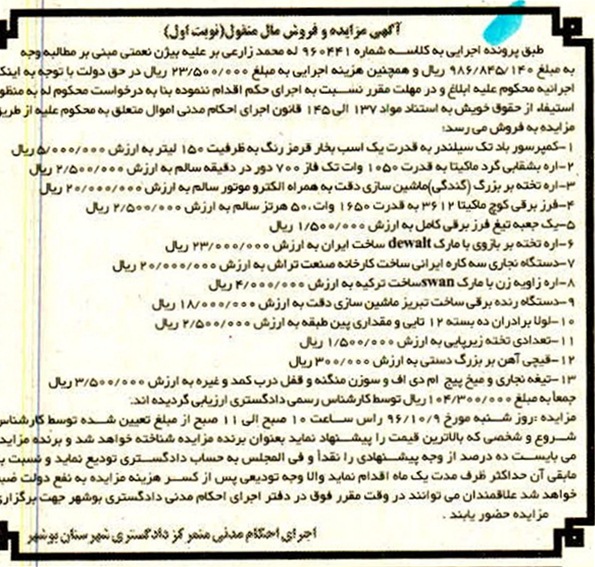 آگهی مزایده و فروش مال منقول(نوبت اول)
طبق پرونده اجرایی به کلاسه شماره ۹۶۰۴۴۱ له محمد زارعی بر علیه بیژن نعمتی مبنی بر مطالبه وجه
به مبلغ ۹۸۶/۸۴۵/۱۴۰ ریال و همچنین هزینه اجرایی به مبلغ ۲۳/۵۰۰/۰۰۰ ریال در حق دولت با توجه به اینکه
اجرائیه محکوم علیه ابلاغ و در مهلت مقرر نسبت به اجرای حکم اقدام ننموده بنا به درخواست محکوم له به منظور
استیفاء از حقوق خویش به استناد مواد ۱۳۷ الی ۱۴۵ قانون اجرای احکام مدنی اموال متعلق به محکوم علیه از طریق
مزایده به فروش می رسد:
۱-کمپرسور باد تک سیلندر به قدرت یک اسب بخار قرمز رنگ به ظرفیت ۱۵۰ لیتر به ارزش ۵/۰۰۰/۰۰۰ ریال
۲-اره بشقابی گرد ماکیتا به قدرت ۱۰۵۰ وات تک فاز ۷۰۰ دور در دقیقه سالم به ارزش ۲/۵۰۰/۰۰۰ ریال
۳-اره تخته بر بزرگ (گندگی)ماشین سازی دقت به همراه الکترو موتور سالم به ارزش ۲۰/۰۰۰/۰۰۰ ریال
۴-فرز برقی کوچ ماکیتا ۳۶۱۲ به قدرت ۱۶۵۰ وات ،۵۰ هرتز سالم به ارزش ۲/۵۰۰/۰۰۰ ریال
۵-یک جعبه تیغ فرز برقی کامل به ارزش ۱/۵۰۰/۰۰۰ ریال
۶-اره تخته بر بازوی با مارک dewalt ساخت ایران به ارزش ۲۳/۰۰۰/۰۰۰ ریال
۷-دستگاه نجاری سه کاره ایرانی ساخت کارخانه صنعت تراش به ارزش ۲۰/۰۰۰/۰۰۰ ریال
۸-اره زاویه زن با مارک swanساخت ترکیه به ارزش ۴/۰۰۰/۰۰۰ ریال
۹-دستگاه رنده برقی ساخت تبریز ماشین سازی دقت به ارزش ۱۸/۰۰۰/۰۰۰ ریال
۱۰-لولا برادران ده بسته ۱۲ تایی و مقداری پین طبقه به ارزش ۲/۵۰۰/۰۰۰ ریال
۱۱-تعدادی تخته زیرپایی به ارزش ۱/۵۰۰/۰۰۰ ریال
۱۲-قیچی آهن بر بزرگ دستی به ارزش ۳۰۰/۰۰۰ ریال
۱۳-تیغه نجاری و میخ پیچ ام دی اف و سوزن منگنه و قفل درب کمد و غیره به ارزش ۳/۵۰۰/۰۰۰ ریال
جمعاً به مبلغ ۱۰۴/۳۰۰/۰۰۰ ریال توسط کارشناس رسمی دادگستری ارزیابی گردیده اند.
مزایده :روز شنبه مورخ ۹۶/۱۰/۹ راس ساعت ۱۰ صبح الی ۱۱ صبح از مبلغ تعیین شده توسط کارشناس
شروع و شخصی که بالاترین قیمت را پیشنهاد نماید بعنوان برنده مزایده شناخته خواهد شد و برنده مزایده
می بایست ده درصد از وجه پیشنهادی را نقداً و فی المجلس به حساب دادگستری تودیع نماید و نسبت به
مابقی آن حداکثر ظرف مدت یک ماه اقدام نماید والا وجه تودیعی پس از کسر هزینه مزایده به نفع دولت ضبط
خواهد شد علاقمندان می توانند در وقت مقرر فوق در دفتر اجرای احکام مدنی دادگستری بوشهر جهت برگزاری
مزایده حضور یابند .
اجرای احکام مدنی متمرکز دادگستری شهرستان بوشهر